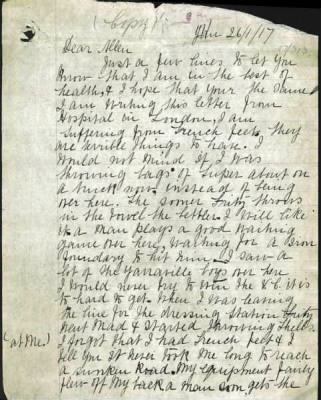 (Copy)
26/1/17
Dear Allen
Just a few lines to let you
know that I am in the best of
health, & I hope that your the same
I am writing this letter from
Hospital in London, I am
suffering from trench feet. they
are terrible things to have. I
would not mind if I was
throwing bags of super about on
a truck now instead of being
over here. The sooner Fritz throws
in the towel the better I will like
it a man plays a good waiting
game over here, waiting for a Iron
Foundary to hit him. I saw a
lot of the Yarraville boys over here
I would never try to win the V.C. it is
to hard to get. When I was leaving
the line for the dressing station Fritz
went Mad & started throwing shells
(at Me.)
I forgot that I had trench feet & I
tell you It never took Me long to reach
a sunken Road. My equipment fairly
flew off My back a man soon gets the